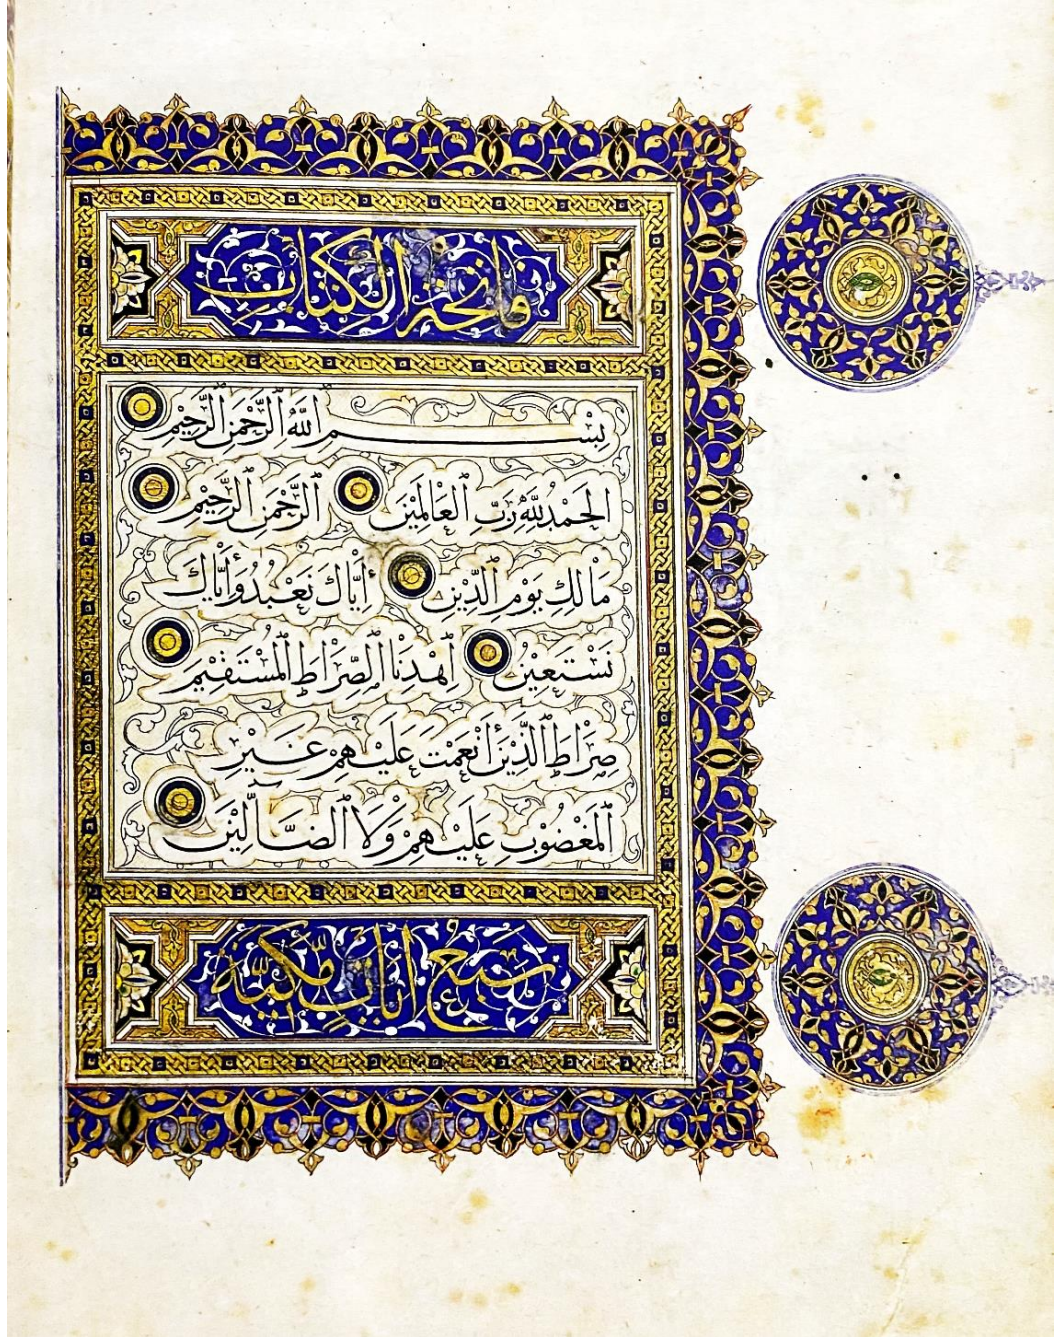 فاتحة الكتاب
بِسْمِ اللَّهِ الرَّحْمَٰنِ الرَّحِيْمِ
الْحَمْدُ لِلَّهِ رَبِّ الْعَالَمِيْنَ الرَّحْمَٰنِ الرَّحِيْمِ
مَالِكِ يَوْمِ الدِّيْنِ إِيَّاكَ نَعْبُدُ وَإِيَّاكَ
نَسْتَعِيْنُ اِهْدِنَا الصِّرَاطَ الْمُسْتَقِيْمَ
صِرَاطَ الَّذِيْنَ أَنْعَمْتَ عَلَيْهِمْ غَيْرِ
الْمَغْضُوْبِ عَلَيْهِمْ وَلَا الضَّالِّيْنَ
سبع آيات مكية